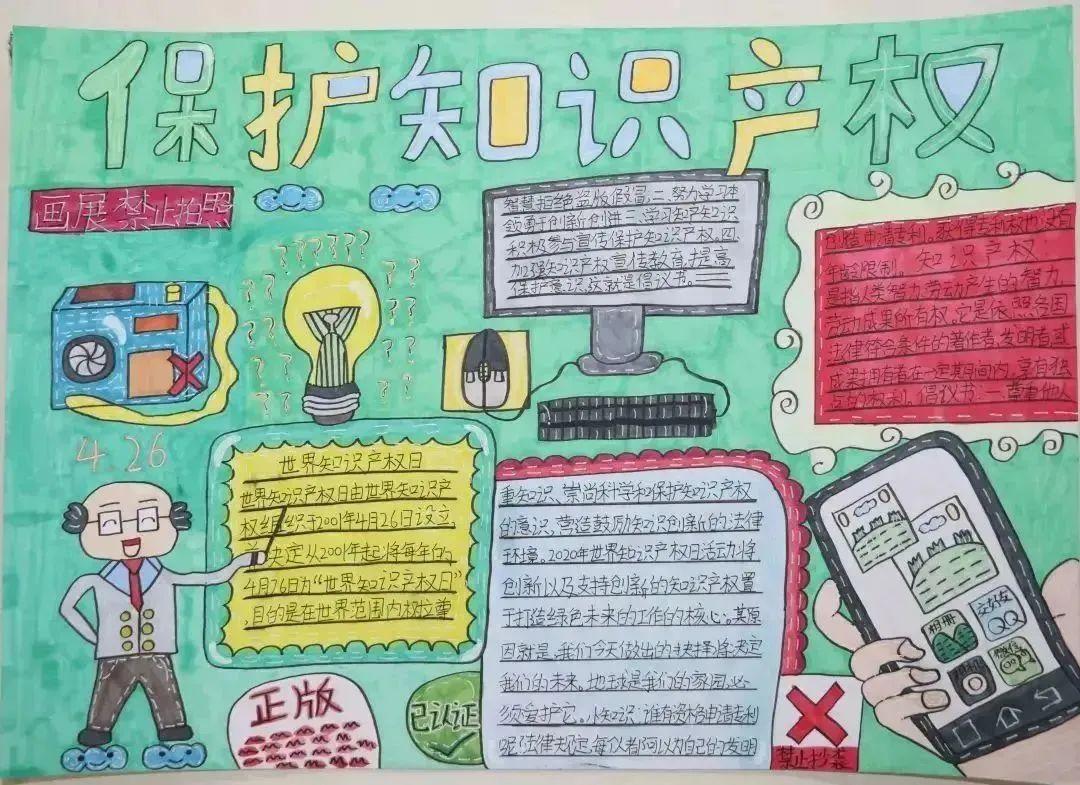 保护知识产权
画展禁止拍照
4.26
世界知识产权日
世界知识产权日由世界知识产
权组织于2001年4月26日设立
并决定从2001年起将每年的
4月26日为“世界知识产权日”
,目的是在世界范围内权拉尊
重知识、崇尚科学和保护知识产权
的意识,营造鼓励知识创新的法律
环境。2020年世界知识产权日活动将
创新以及支持创新的知识产权置
于打造绿色未来的工作的核心。某原
因就是,我们今天做出的抉择将决定
我们的未来。地球是我们的家园,必
须爱护它。小知识:谁有资格申请专利
呢?法律规定,每位者阿以为自己的发明
创造申请专利。获得专利权也没有
年龄限制。知识产权
是指人类智力劳动产生的智力
劳动成果所有权,它是依照各国
法律符合条件的著作者、发明者或
成果拥有者在一定期间内,享有独
占的权利。倡议书:一、尊重他人
智慧拒绝盗版假冒;二、努力学习本
领勇于创新创进三、学习知产知识
积极参与宣传保护知识产权。四、
加强知识产权宣传教育,提高
保护意识,这就是倡议书。
相册
交好友
QQ
微信
相机
正版
已认证
禁止抄袭